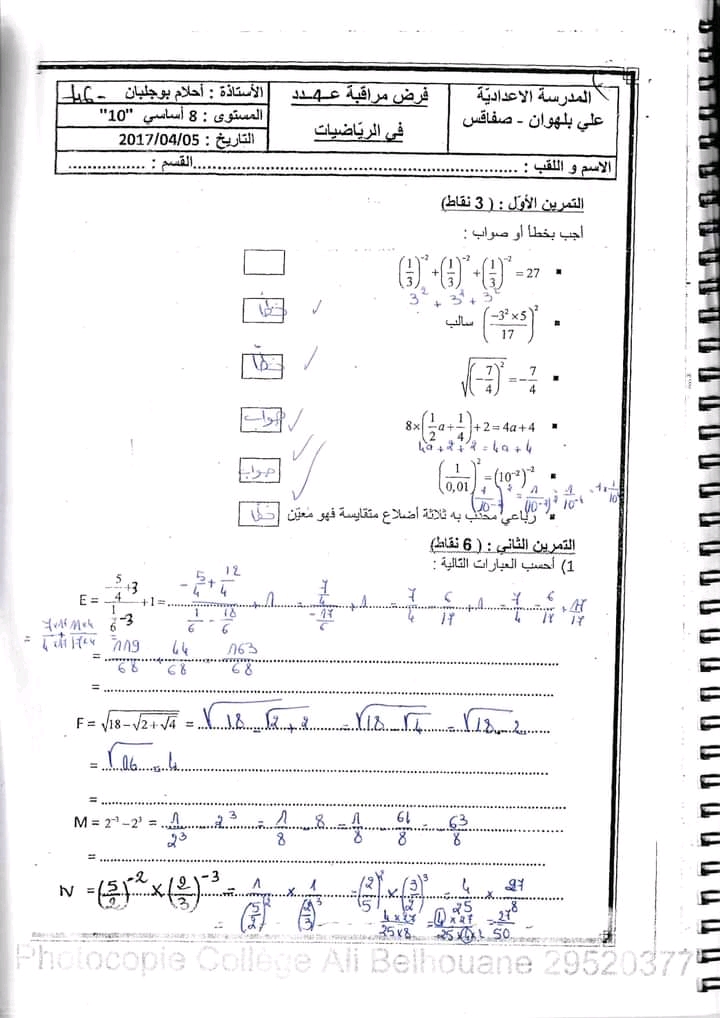 المدرسة الاعداديّة
علي بلهوان - صفاقس
فرض مراقبة عـ4ـدد
في الريّاضيات
الأستاذة : أحلام بوجلبان
المستوى : 8 أساسي "10"
التاريخ : 2017/04/05
الاسم و اللقب : ........................ القسم : ................
التمرين الأوّل : ( 3 نقاط)
أجب بخطأ أو صواب :
▪ (1/3)^-2 + (1/3)^-2 + (1/3)^-2 = 27
3^2 + 3^2 + 3^2
▪ (-3^2×5/17)^2 سالب خطأ ✓
▪ √(-7/4)^2 = -7/4 خطأ ✓
▪ 8×(1/2 a + 1/4) + 2 = 4a + 4 صواب ✓
4a + 2 + 2 = 4a + 4
▪ (1/0,01)^2 = (10^-2)^-2 صواب ✓
▪ رباعي محدّب به ثلاثة أضلاع متقايسة فهو معيّن خطأ
التمرين الثاني : ( 6 نقاط)
1) أحسب العبارات التالية :
E = (-5/4+3)/(1/6-3) + 1 = (-5/4 + 12/4)/(1/6 - 18/6) + 1 = (7/4)/(-17/6) + 1 = 7/4 - 6/17 + 1 = 7/4 - 6/17 + 17/17
= 119/68 + 44/68 = 163/68
= ........................
F = √18-√2+√4 = √18-√2+2 = √18-√4 = √18-2
= √16 = 4
= ........................
M = 2^-3 - 2^3 = 1/2^3 - 2^3 = 1/8 - 8 = 1/8 - 64/8 = -63/8
= ........................
N = (5/2)^-2 × (2/3)^-3 = 1/(5/2)^2 × 1/(2/3)^3 = (2/5)^2 × (3/2)^3 = 4/25 × 27/8
= 4×27/25×8 = 4×27/25×4×2 = 27/50
Photocopie Collège Ali Belhouane 29520377